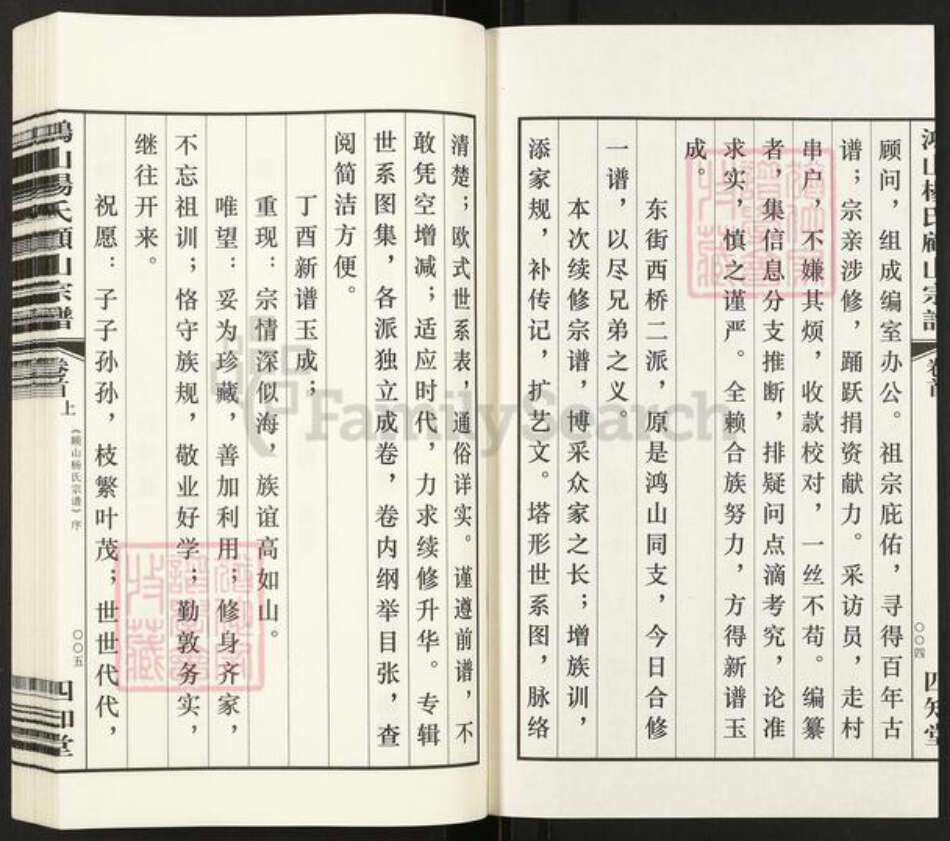 顾问，组成编室办公。祖宗庇佑，寻得百年古
谱；宗亲涉修，踊跃捐资献力。采访员，走村
串户，不嫌其烦，收款校对，一丝不苟。编纂
者，集信息分支推断，排疑问点滴考究，论准
求实，慎之谨严。全赖合族努力，方得新谱玉
成。
东街西桥二派，原是鸿山同支，今日合修
一谱，以尽兄弟之义。
本次续修宗谱，博采众家之长；增族训，
添家规，补传记，扩艺文。塔形世系图，脉络
〇〇四
四知堂
清楚；欧式世系表，通俗详实。谨遵前谱，不
敢凭空增减；适应时代，力求续修升华。专辑
世系图集，各派独立成卷，卷内纲举目张，查
阅简洁方便。
丁酉新谱玉成；
重现：宗情深似海，族谊高如山。
唯望：妥为珍藏，善加利用；修身齐家，
不忘祖训；恪守族规，敬业好学；勤敦务实，
继往开来。
祝愿：子子孙孙，枝繁叶茂；世世代代，
卷首上
《顾山杨氏宗谱》序
〇〇五
四知堂
FamilySearch